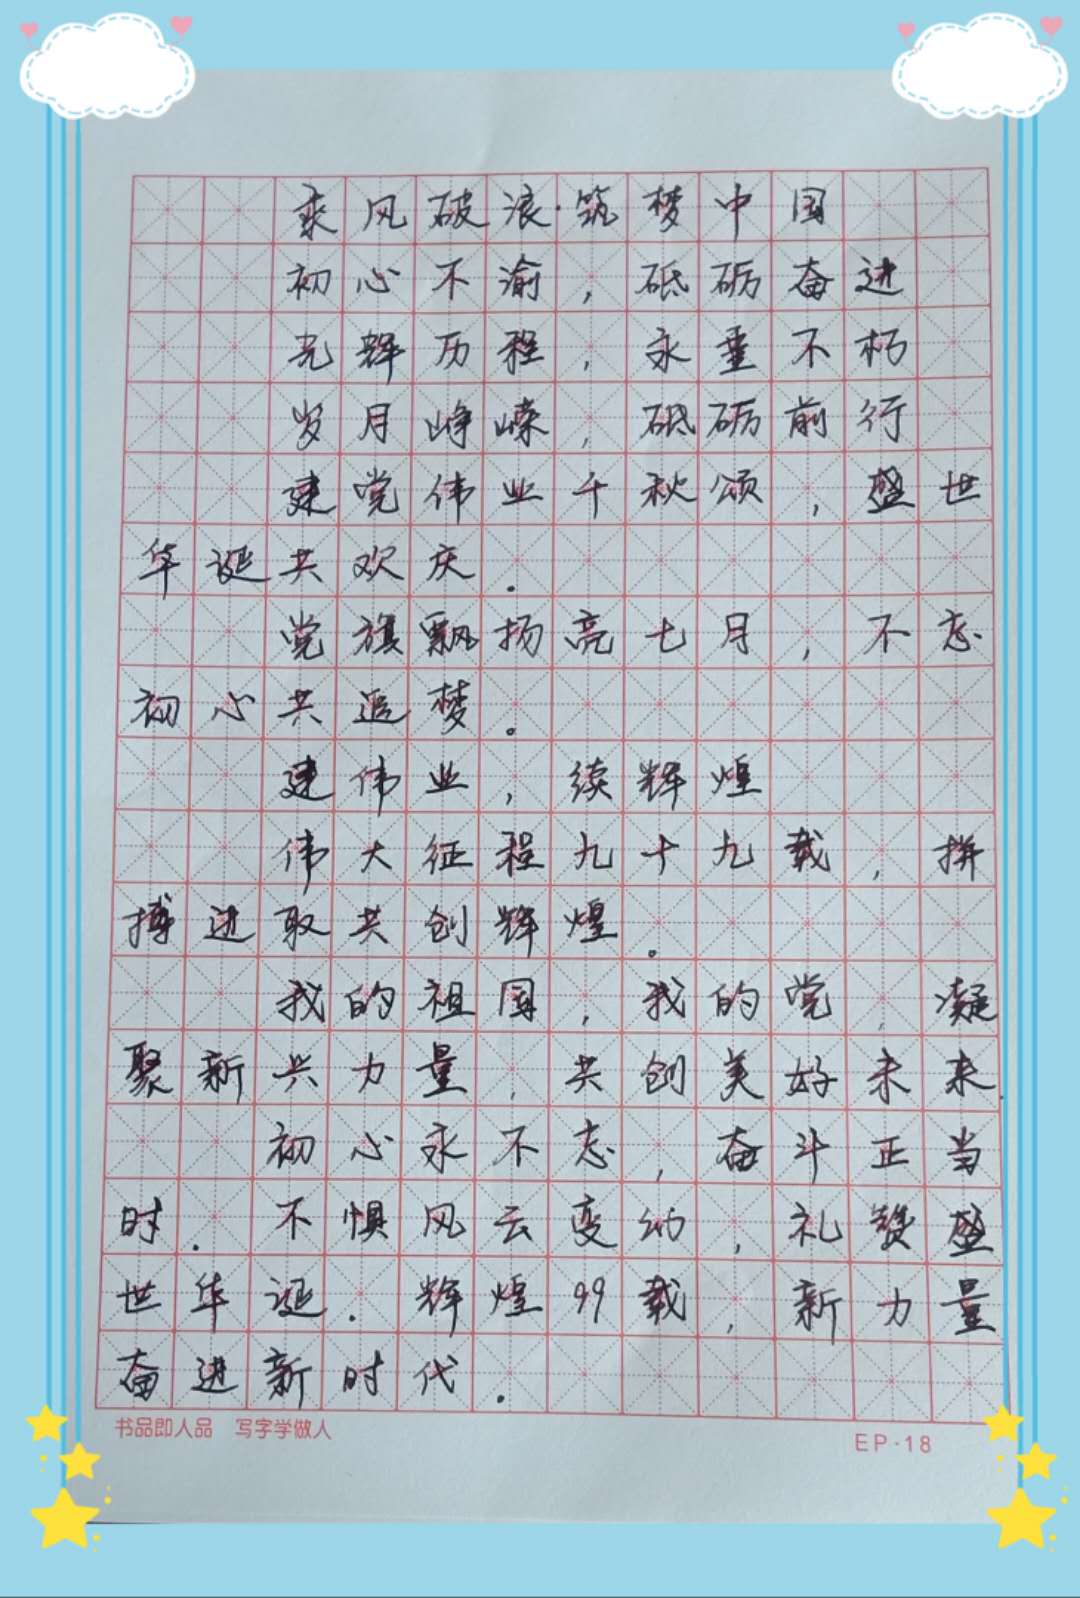 乘风破浪·筑梦中国
初心不渝，砥砺奋进
光辉历程，永垂不朽
岁月峥嵘，砥砺前行
建党伟业千秋颂，盛世
华诞共欢庆.
党旗飘扬亮七月，不忘
初心共追梦。
建伟业，续辉煌
伟大征程九十九载，拼
搏进取共创辉煌。
我的祖国，我的党，凝
聚新兴力量，共创美好未来.
初心永不忘，奋斗正当
时.不惧风云变幻，礼赞盛
世华诞.辉煌99载，新力量
奋进新时代.
书品即人品 写字学做人
EP-18